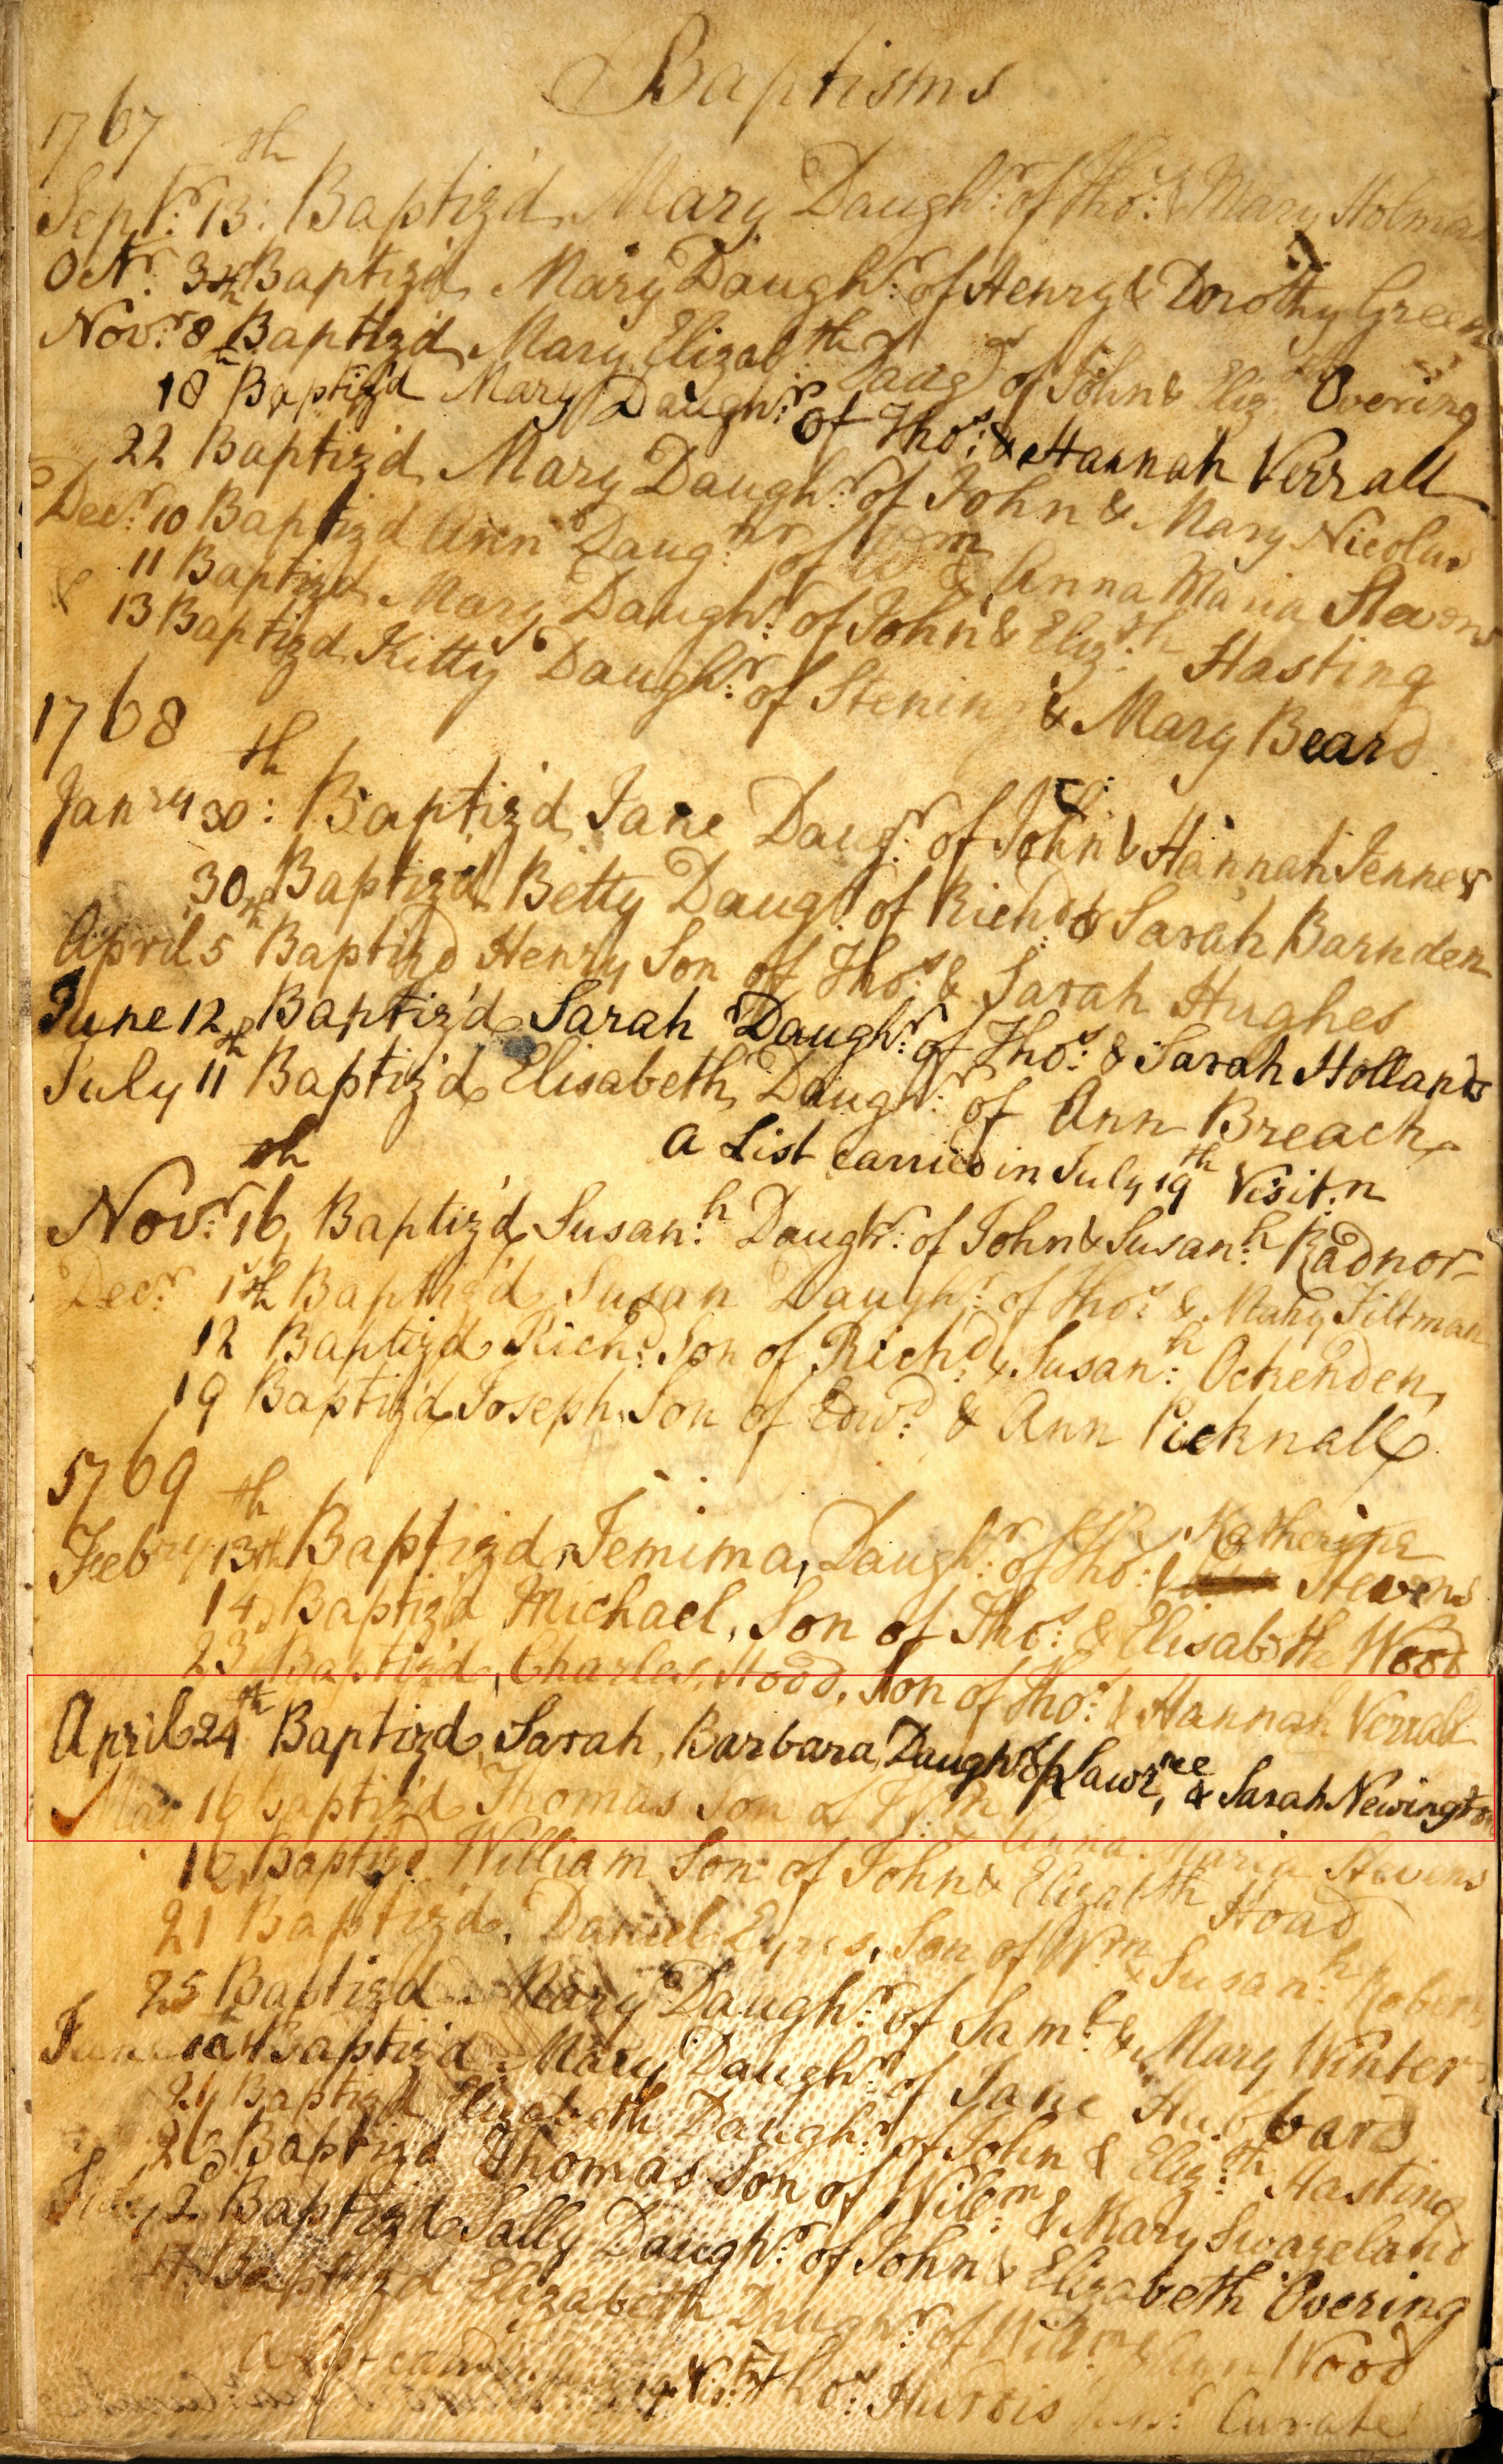 Baptisms
1767
Septr: 13th: Baptiz'd Mary Daughr: of Thos: & Mary Holman
Octr: 3 Baptiz'd Mary Daughr: of Henry & Dorothy Green
Novr: 8th Baptiz'd Mary Elizabth Daugr of John & Eliz Overing
18th Baptiz'd Mary Daughr: of Thos: & Hannah Verrall
22 Baptiz'd Mary Daughr: of John & Mary Nicolas
Decr: 10 Baptiz'd Ann Daughr of Wm & Anna Maria Stevens
11 Baptizd Mary Daughr: of John & Elizth: Hasting
& 13 Baptizd Kitty Daughr: of Stening & Mary Beard
1768
Janry 30th: Baptiz'd Jane Daugr: of John & Hannah Jenner
30 Baptiz'd Betty Daugr: of Richd: & Sarah Barnden
April 5th Baptizd Henry Son of Thos: & Sarah Hughes
June 12 Baptiz'd Sarah Daughr: of Thos: & Sarah Hollands
July 11th Baptiz'd Elisabeth Daughr: of Ann Breach
A List carried in July 19th Visit:n
Novr: 16th Baptiz'd Susan:h Daughr: of John & Susan:h Radnor
Decr: 1st Baptiz'd Susan Daughr: of Thos: & Mary Tiltman
12th Baptiz'd Richd: Son of Richd: & Susan:h Ockenden
19 Baptiz'd Joseph Son of Edwd: & Ann Picknall
1769
Febry 13th Baptizd Jemima, Daughr: of Thos: & Katherine Stevens
14th Baptiz'd Michael, Son of Thos: & Elisabeth Wood
23 Baptiz'd, Charles, Hood, Son of Thos: & Hannah Verrall
April 24th Baptiz'd Sarah, Barbara, Daughr of Lawr,nce & Sarah Newington
May 16 baptiz'd Thomas Son of Wm & Anna Maria Stevens
16 Baptizd William Son of John & Elizabth Hoad
21 Baptiz'd, Daniel Eyres, Son of Wm & Susan:h Roberts
25 Baptizd Mary Daughr: of Saml: & Mary Winter
June Baptiz'd Mary Daughr: of Jane Hubbard
24 Baptizd Elizabeth Daughr: of John & Eliz:th Hasting
26 Baptizd Thomas Son of Willm: & Mary Swaneland
July 2d Baptizd Sally Daughr: of John & Elizabeth Overing
Baptizd Elizabeth Daughr: of Willm & Ann Wood
A List carried in 19 Visit:n Thos: Hurdis Junr: Curate